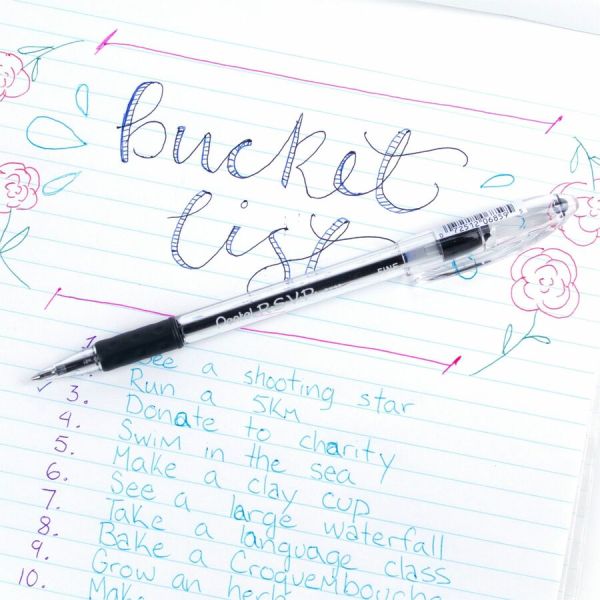 bucket
list
072512 06859
FINE
Pentel R.S.V.P.
1. See a shooting star
Run a 5Km
3. Donate to charity
4. Swim in the sea
5. Make a clay cup
6. See a large waterfall
7. Take a language class
8. Bake a Croquembouche
9. Grow an herb
10. Make